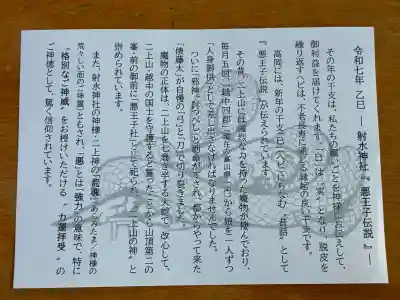 令和七年 乙巳 ― 射水神社『悪王子伝説』―
その年の干支は、私たちの願いごとを神様にお伝えして、
御利益を届けてくれます。「巳」は〝実〟ともなり、脱皮を
繰り返すヘビは、不老長寿に通じる縁起の良い干支です。
高岡には、新年の干支〝巳〟(ヘビ)にちなむ〝昔話〟として
『悪王子伝説』が伝えられています。
その昔、二上山には強烈な力を持った魔物が棲んでおり、
毎月五回、越中四郡(現在の富山県)から娘を一人ずつ
「人身御供」として差し出さなければなりませんでした。
ついに〝邪神〟討つべしとの勅命が下され、都からやって来た
「俵藤太」が自慢の〝弓〟と〝刀〟で切り裂きました。
魔物の正体は、二上山を七巻半する大蛇で、改心して、
二上山・越中の国土を守護すると誓ったことから山頂第二の
峯・前の御前に「悪王子社」として祀られ〝二上山の神〟と
崇められています。
また、射水神社の神様・二上神の「荒魂」(あらみたま/神様の
荒々しい面のご神霊)ともされ、〝悪〟とは〝強力〟の意味で、特に
〝格別なご神威〟をお授けいただける〝力運拝受〟の
ご神徳として、篤く信仰されています。